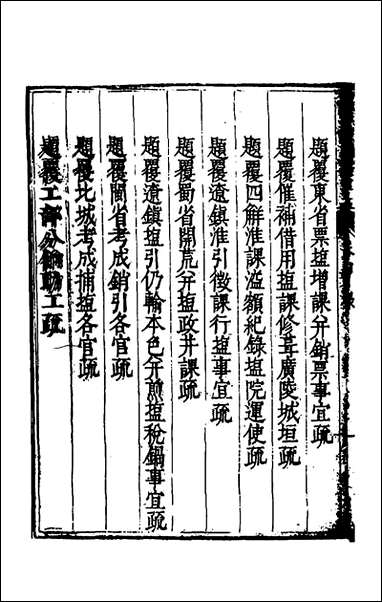 題覆東省票塩增課并銷票事宜疏
題覆催補借用塩課修葺廣陵城垣疏
題覆四觧淮課溢額紀錄塩院運使疏
題覆遼鎮准引徵課行塩事宜疏
題覆蜀省開荒并塩政井課疏
題覆遼鎮塩引仍輸本色并煎塩稅鍋事宜疏
題覆閩省考成銷引各官疏
題覆北城考成捕塩各官疏
題覆工部分餉助工疏